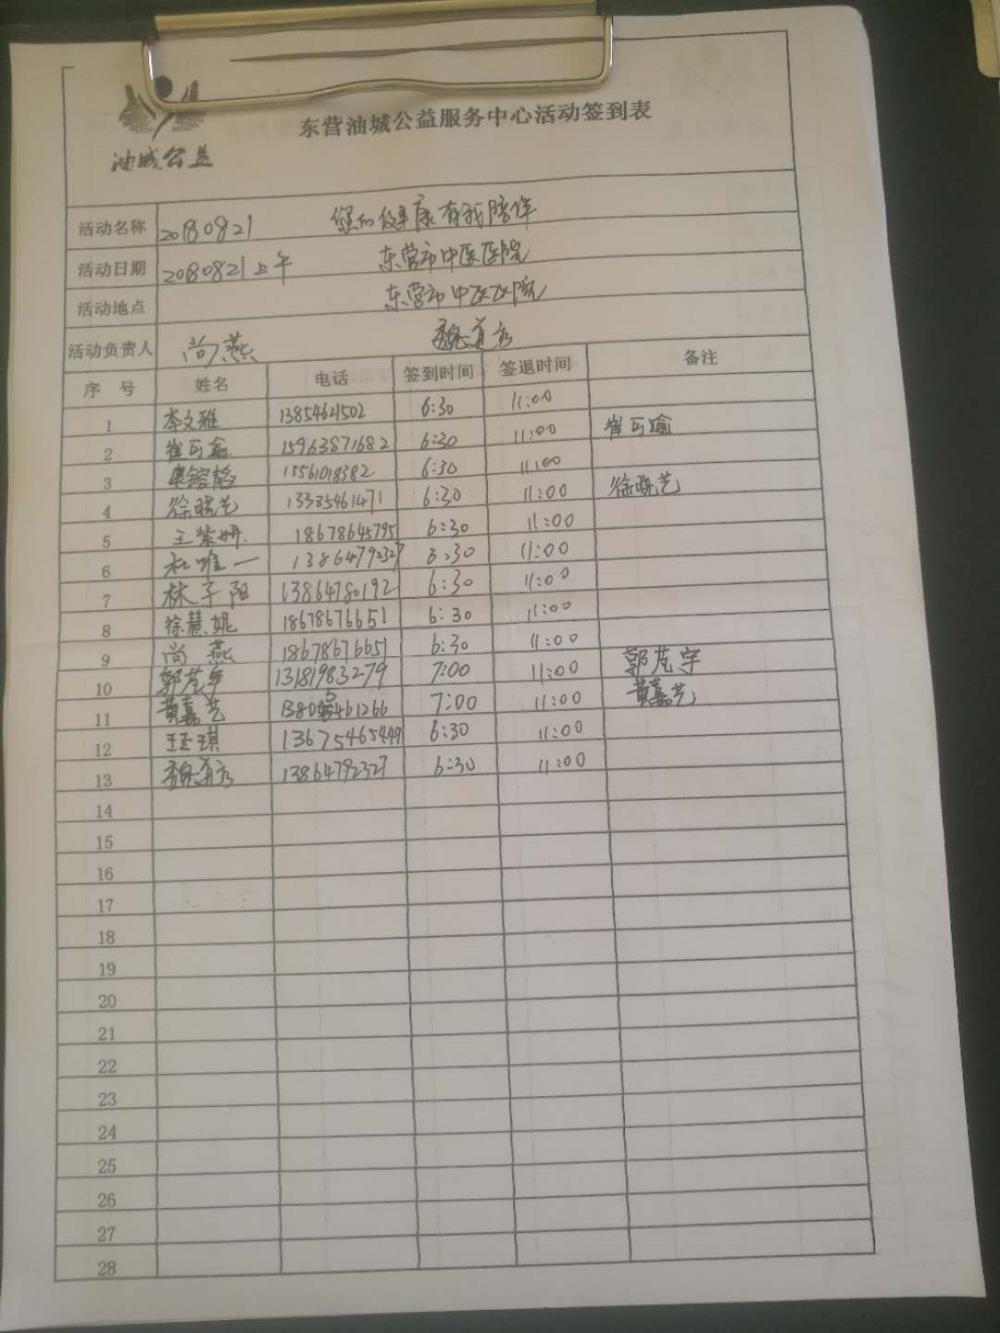 东营油城公益服务中心活动签到表
油城公益
活动名称 20180821 您的健康有我陪伴
活动日期 20180821上午 东营市中医医院
活动地点 东营市中医医院
活动负责人 尚燕
序 号 姓名 电话 签到时间 签退时间 备注
1 李文雅 13854621502 6:30 11:00
2 崔可瑜 15963871682 6:30 11:00 崔可瑜
3 15561018382 6:30 11:00
4 徐晓艺 13385461471 6:30 11:00 徐晓艺
5 王紫妍 18678645795 6:30 11:00
6 杜唯一 13864792327 6:30 11:00
7 林子阳 13864780192 6:30 11:00
8 徐慧妮 18678676651 6:30 11:00
9 尚燕 18678676651 6:30 11:00
10 郭芃宇 13181983279 7:00 11:00 郭芃宇
11 黄嘉艺 7:00 11:00 黄嘉艺
12 13675465449 6:30 11:00
13 13864792327 6:30 11:00
14
15
16
17
18
19
20
21
22
23
24
25
26
27
28